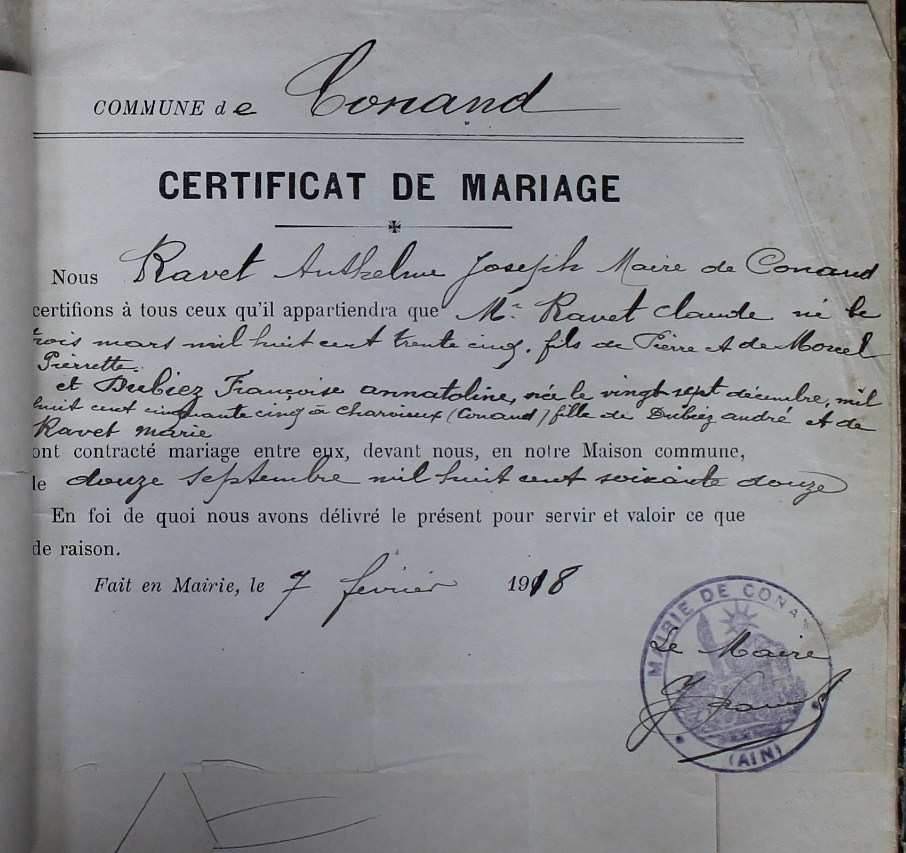 COMMUNE de Conand
CERTIFICAT DE MARIAGE
Nous Ravet Anthelme Joseph Maire de Conand
certifions à tous ceux qu'il appartiendra que Mr Ravet Claude né le
trois mars mil huit cent trente cinq. fils de Pierre et de Morel
Pierrette.
et Dubiez Françoise annatoline, née le vingt sept décembre, mil
huit cent cinquante cinq à Charvieux (Conand) fille de Dubiez andré et de
Ravet marie
ont contracté mariage entre eux, devant nous, en notre Maison commune,
le douze septembre mil huit cent soixante douze
En foi de quoi nous avons délivré le présent pour servir et valoir ce que
de raison.
Fait en Mairie, le 7 février 1918
MAIRIE DE CONAND
Le Maire
J Ravet
(AIN)